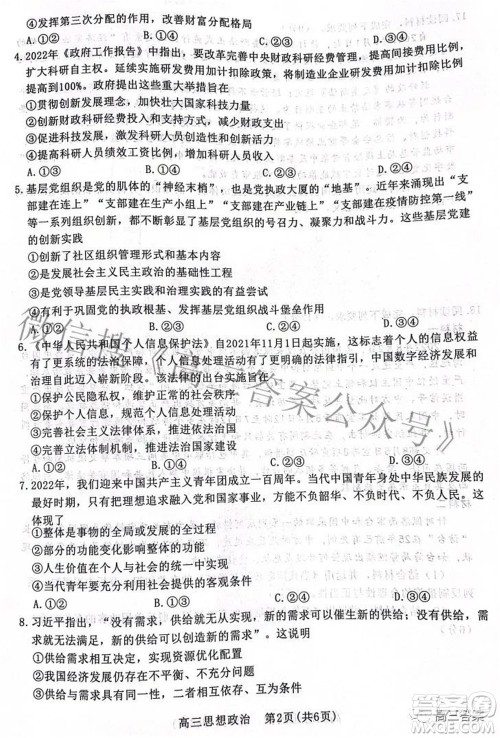 ④发挥第三次分配的作用，改善财富分配格局
A.①② B.①③ C.②④ D.③④
4.2022年《政府工作报告》中指出，要改革完善中央财政科研经费管理，提高间接费用比例，
扩大科研自主权。延续实施研发费用加计扣除政策，将制造业企业研发费用加计扣除比例
提高到100%。政府提出这些重大举措旨在
①贯彻创新发展理念，加快壮大国家科技力量
②创新财政科研经费投入和支持方式，驱动创新发展
③促进科技发展，激发科研人员创造性和创新活力
④提升科研人员绩效工资比例，增加科研人员收入
A.①② B.①④ C.②③ D.③④
5.基层党组织是党的肌体的“神经末梢”，也是党执政大厦的“地基”。近年来涌现出“支
部建在连上”“支部建在生产小组上”“支部建在产业链上”“支部建在疫情防控第一线”
等一系列组织创新，不断彰显了基层党组织的号召力、凝聚力和战斗力。这些基层党组织
的创新实践
①创新了社区组织管理形式和基本内容
②是发展社会主义民主政治的基础性工程
③是党领导基层民主实践和治理实践的有益尝试
④有利于巩固党的执政根基、发挥党组织战斗堡垒作用
A.①② B.①④ C.②③ D.③④
6.《中华人民共和国个人信息保护法》自2021年11月1日起实施，这标志着个人的信息权益
有了更系统的法治保障，个人信息处理活动有了更明确的法律指引，中国数字经济发展和
治理迈上崭新阶段。该法律的出台实施旨在
①保护公民隐私权，维护正常的社会秩序
②保护个人信息，规范个人信息处理活动
③完善社会主义法律体系，推进依法治国
④完善法治经济体系，推进法治国家建设
A.①② B.①④ C.②③ D.③④
7.2022年，我们迎来中国共产主义青年团成立一百周年。当代中国青年身处中华民族发展的
最好时期，只有把理想追求融入党和国家事业，方能不负韶华、不负时代、不负人民。这
体现了
①整体是事物的全部和发展的全过程
②部分的功能变化影响甚至决定整体功能
③人生理想是个人与社会的统一中实现
④当代青年要充分利用社会提供的客观条件
A.①② B.①③ C.②④ D.③④
8.习近平指出，“没有需求，供给就无从实现，新的需求可以催生新的供给；没有供给，需
求就无法满足，新的供给可以创造新的需求”。这说明
①供需矛盾是我国社会的基本矛盾
②我国经济发展仍存在不平衡、不充分问题
③矛盾双方是相互依存、相互贯通的
④矛盾双方既对立又统一，推动事物发展
高三思想政治 第2页(共6页)
微信搜《高三答案公众号》
高三答案